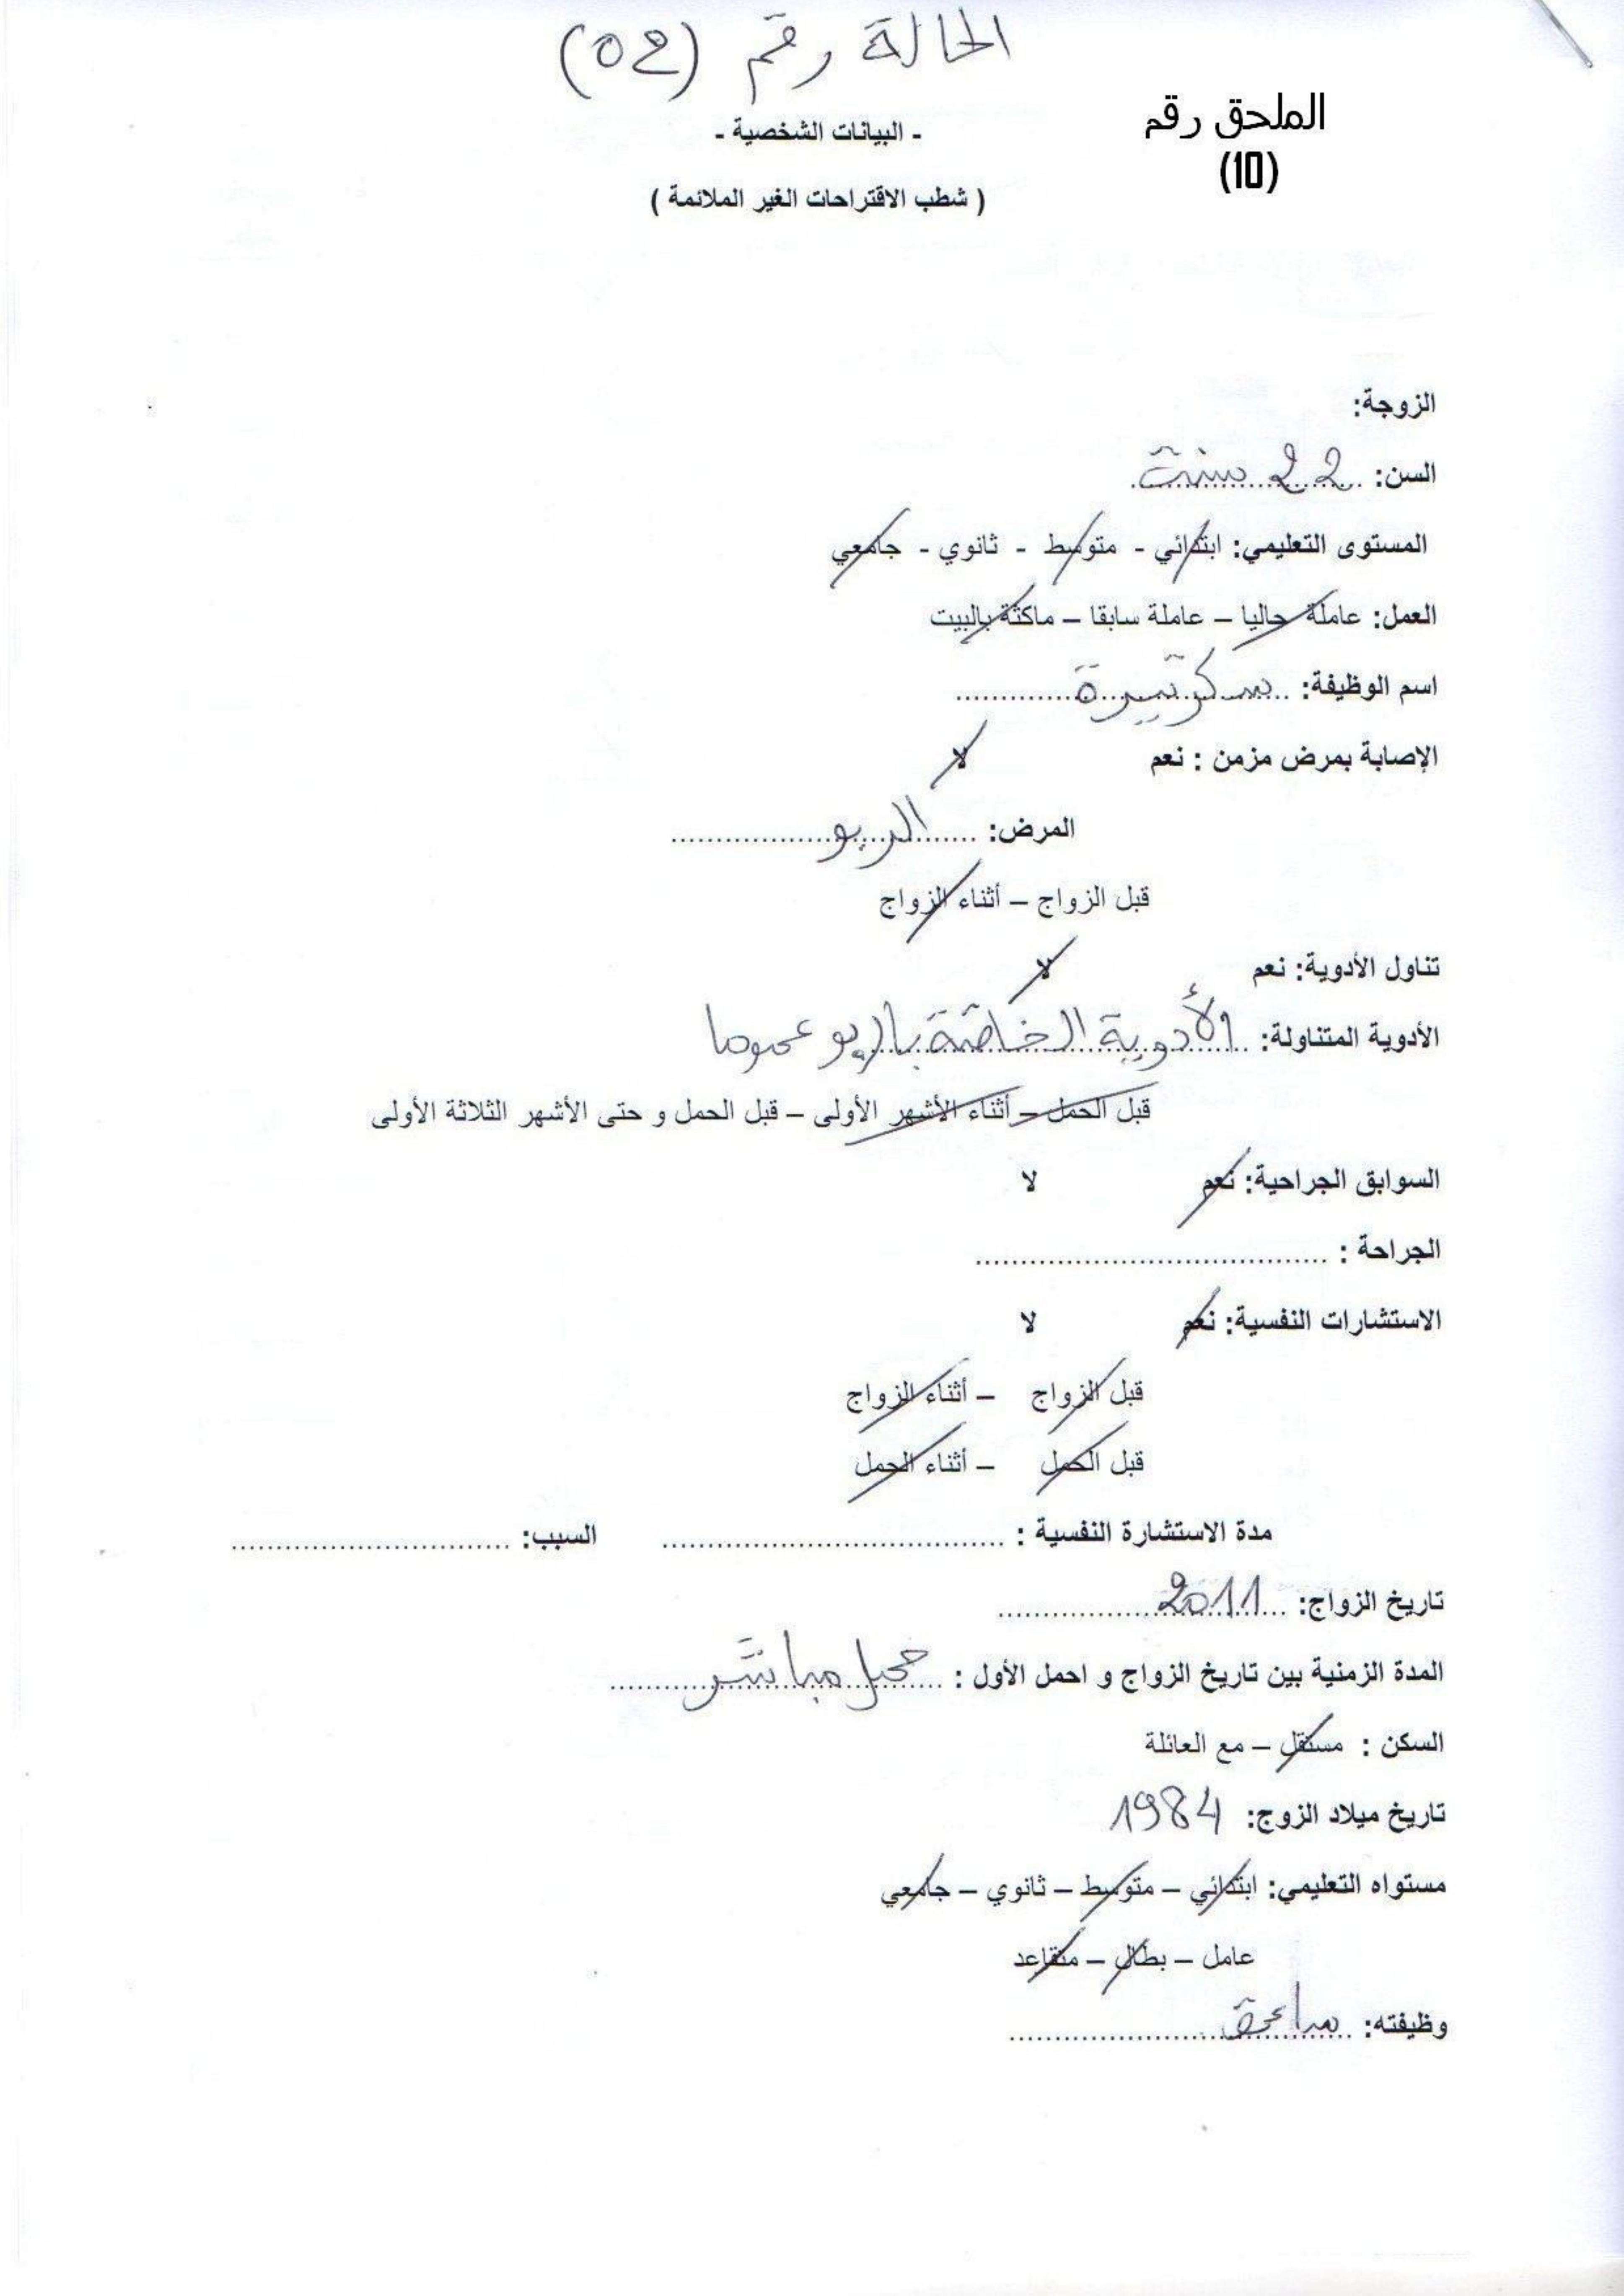 الحالة رقم (02)
الملحق رقم
(10)
- البيانات الشخصية -
( شطب الاقتراحات الغير الملائمة )
الزوجة:
السن: 22 سنة
المستوى التعليمي: ابتدائي - متوسط - ثانوي - جامعي
العمل: عاملة حاليا – عاملة سابقا – ماكثة بالبيت
اسم الوظيفة: سكرتيرة
الإصابة بمرض مزمن : نعم لا
المرض: الربو
قبل الزواج – أثناء الزواج
تناول الأدوية: نعم لا
الأدوية المتناولة: الأدوية الخاصة بالربو عموما
قبل الحمل – أثناء الأشهر الأولى – قبل الحمل و حتى الأشهر الثلاثة الأولى
السوابق الجراحية: نعم لا
الجراحة : ......................................
الاستشارات النفسية: نعم لا
قبل الزواج – أثناء الزواج
قبل الحمل – أثناء الحمل
مدة الاستشارة النفسية : ..................................... السبب: ..............................
تاريخ الزواج: 2011
المدة الزمنية بين تاريخ الزواج و احمل الأول : حمل مباشر
السكن : مستقل – مع العائلة
تاريخ ميلاد الزوج: 1984
مستواه التعليمي: ابتدائي – متوسط – ثانوي – جامعي
عامل – بطال – متقاعد
وظيفته: